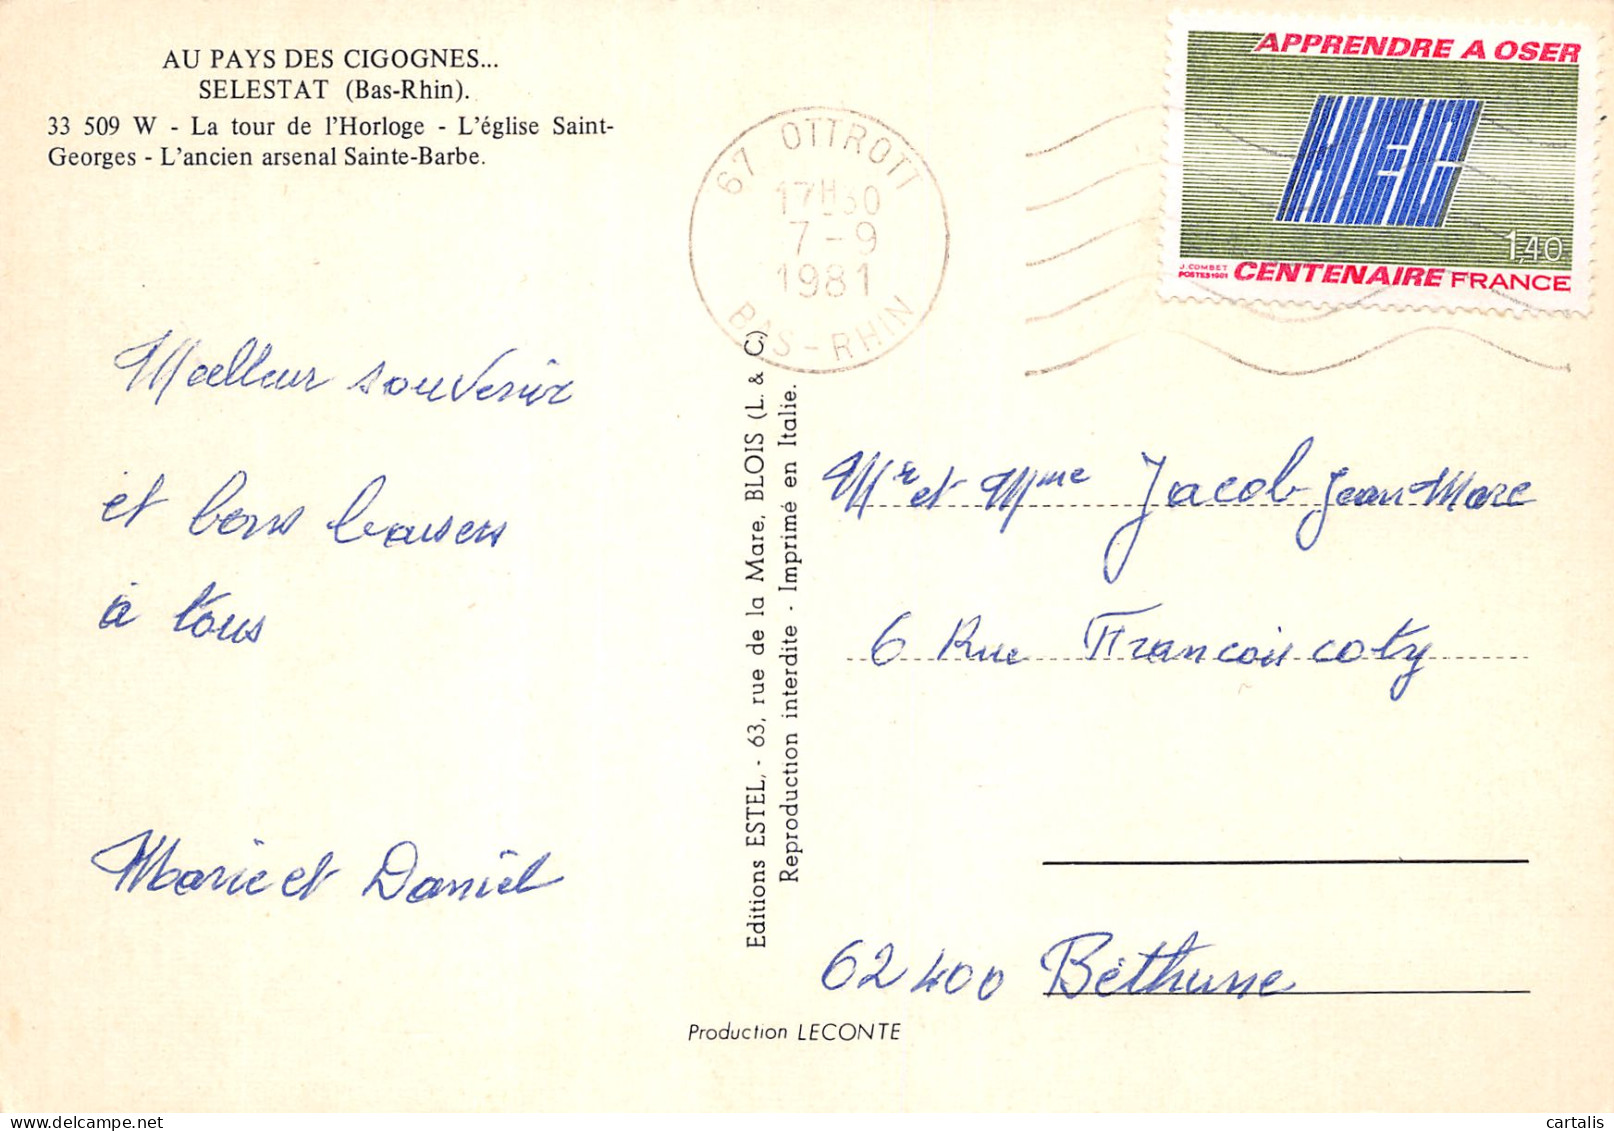 AU PAYS DES CIGOGNES...
SELESTAT (Bas-Rhin).
33 509 W - La tour de l'Horloge - L'église Saint-
Georges - L'ancien arsenal Sainte-Barbe.
67 OTTROTT
17H30
7-9
1981
BAS-RHIN
APPRENDRE A OSER
HEC
1,40
J. COMBET
POSTES 1981
CENTENAIRE FRANCE
Meilleur souvenir
et bons baisers
à tous
Marie et Daniel
Editions ESTEL, - 63, rue de la Mare, BLOIS (L. & C.)
Reproduction interdite - Imprimé en Italie.
Mr et Mme Jacob Jean Marc
6 Rue Francois coty
62400 Béthune
Production LECONTE
cartalis